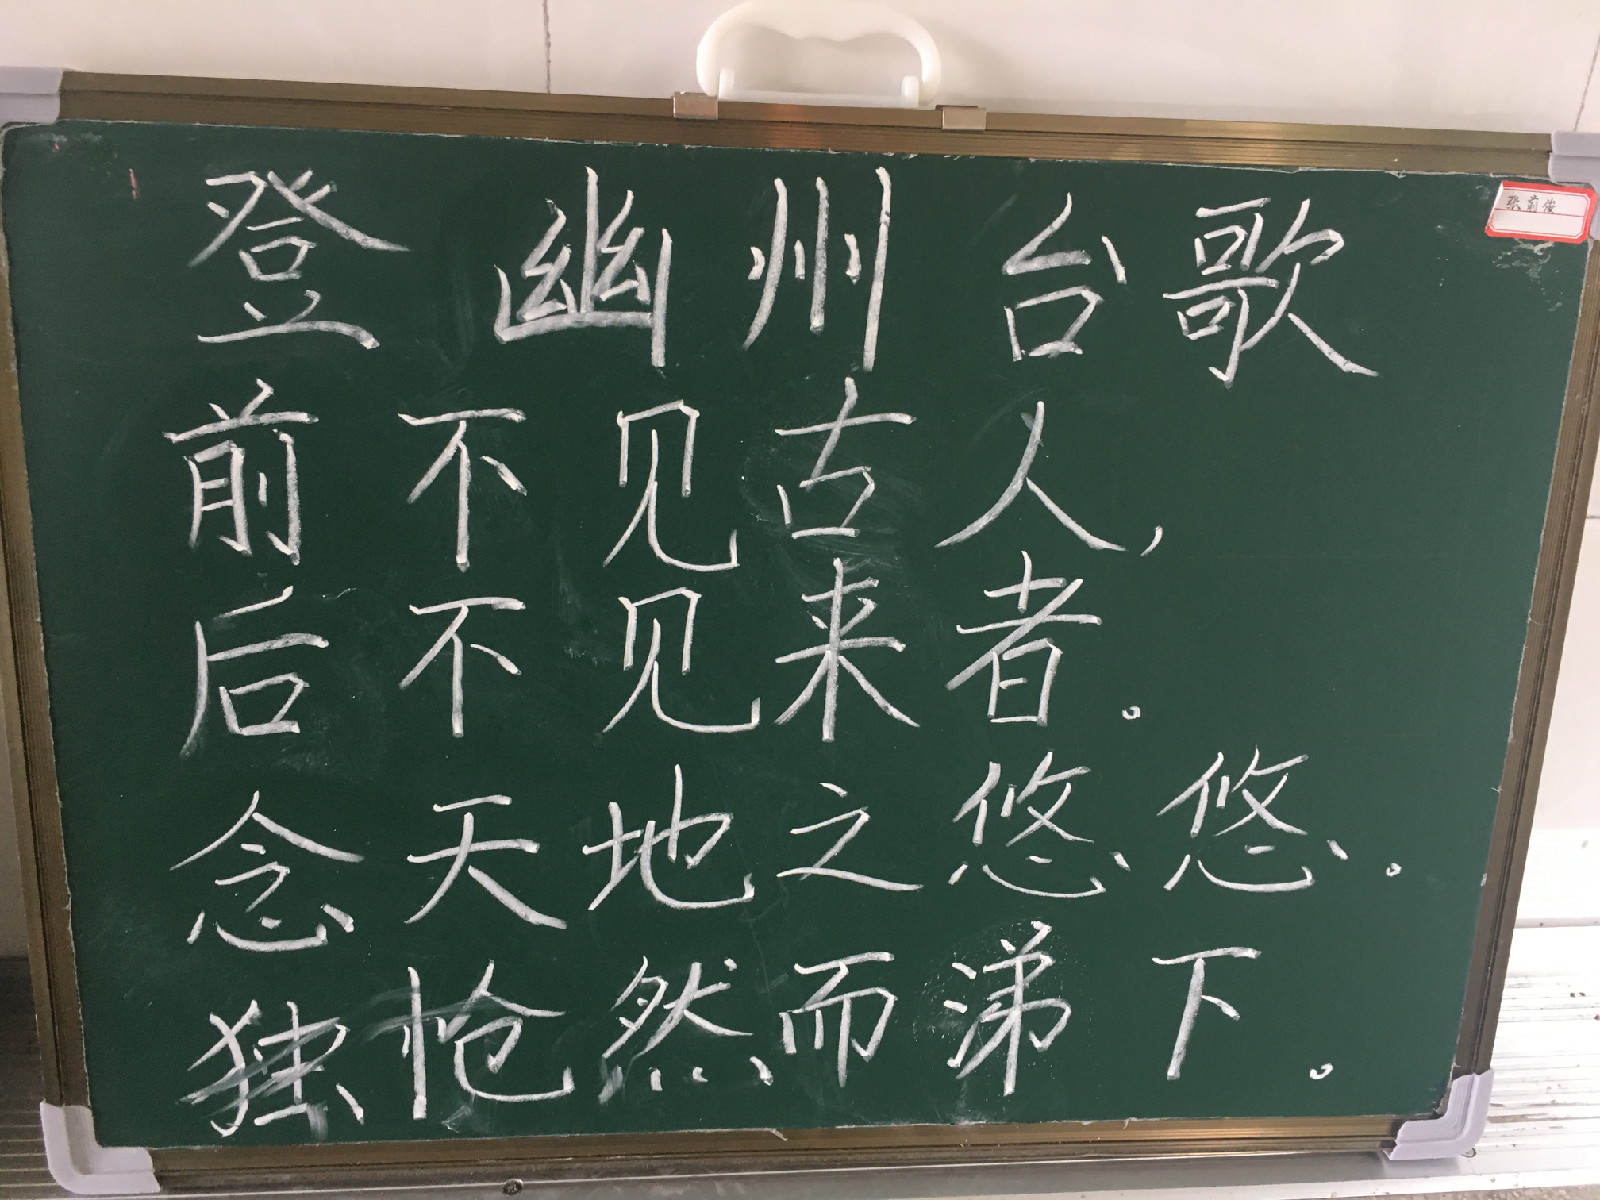 登幽州台歌
前不见古人，
后不见来者。
念天地之悠悠。
独怆然而涕下。